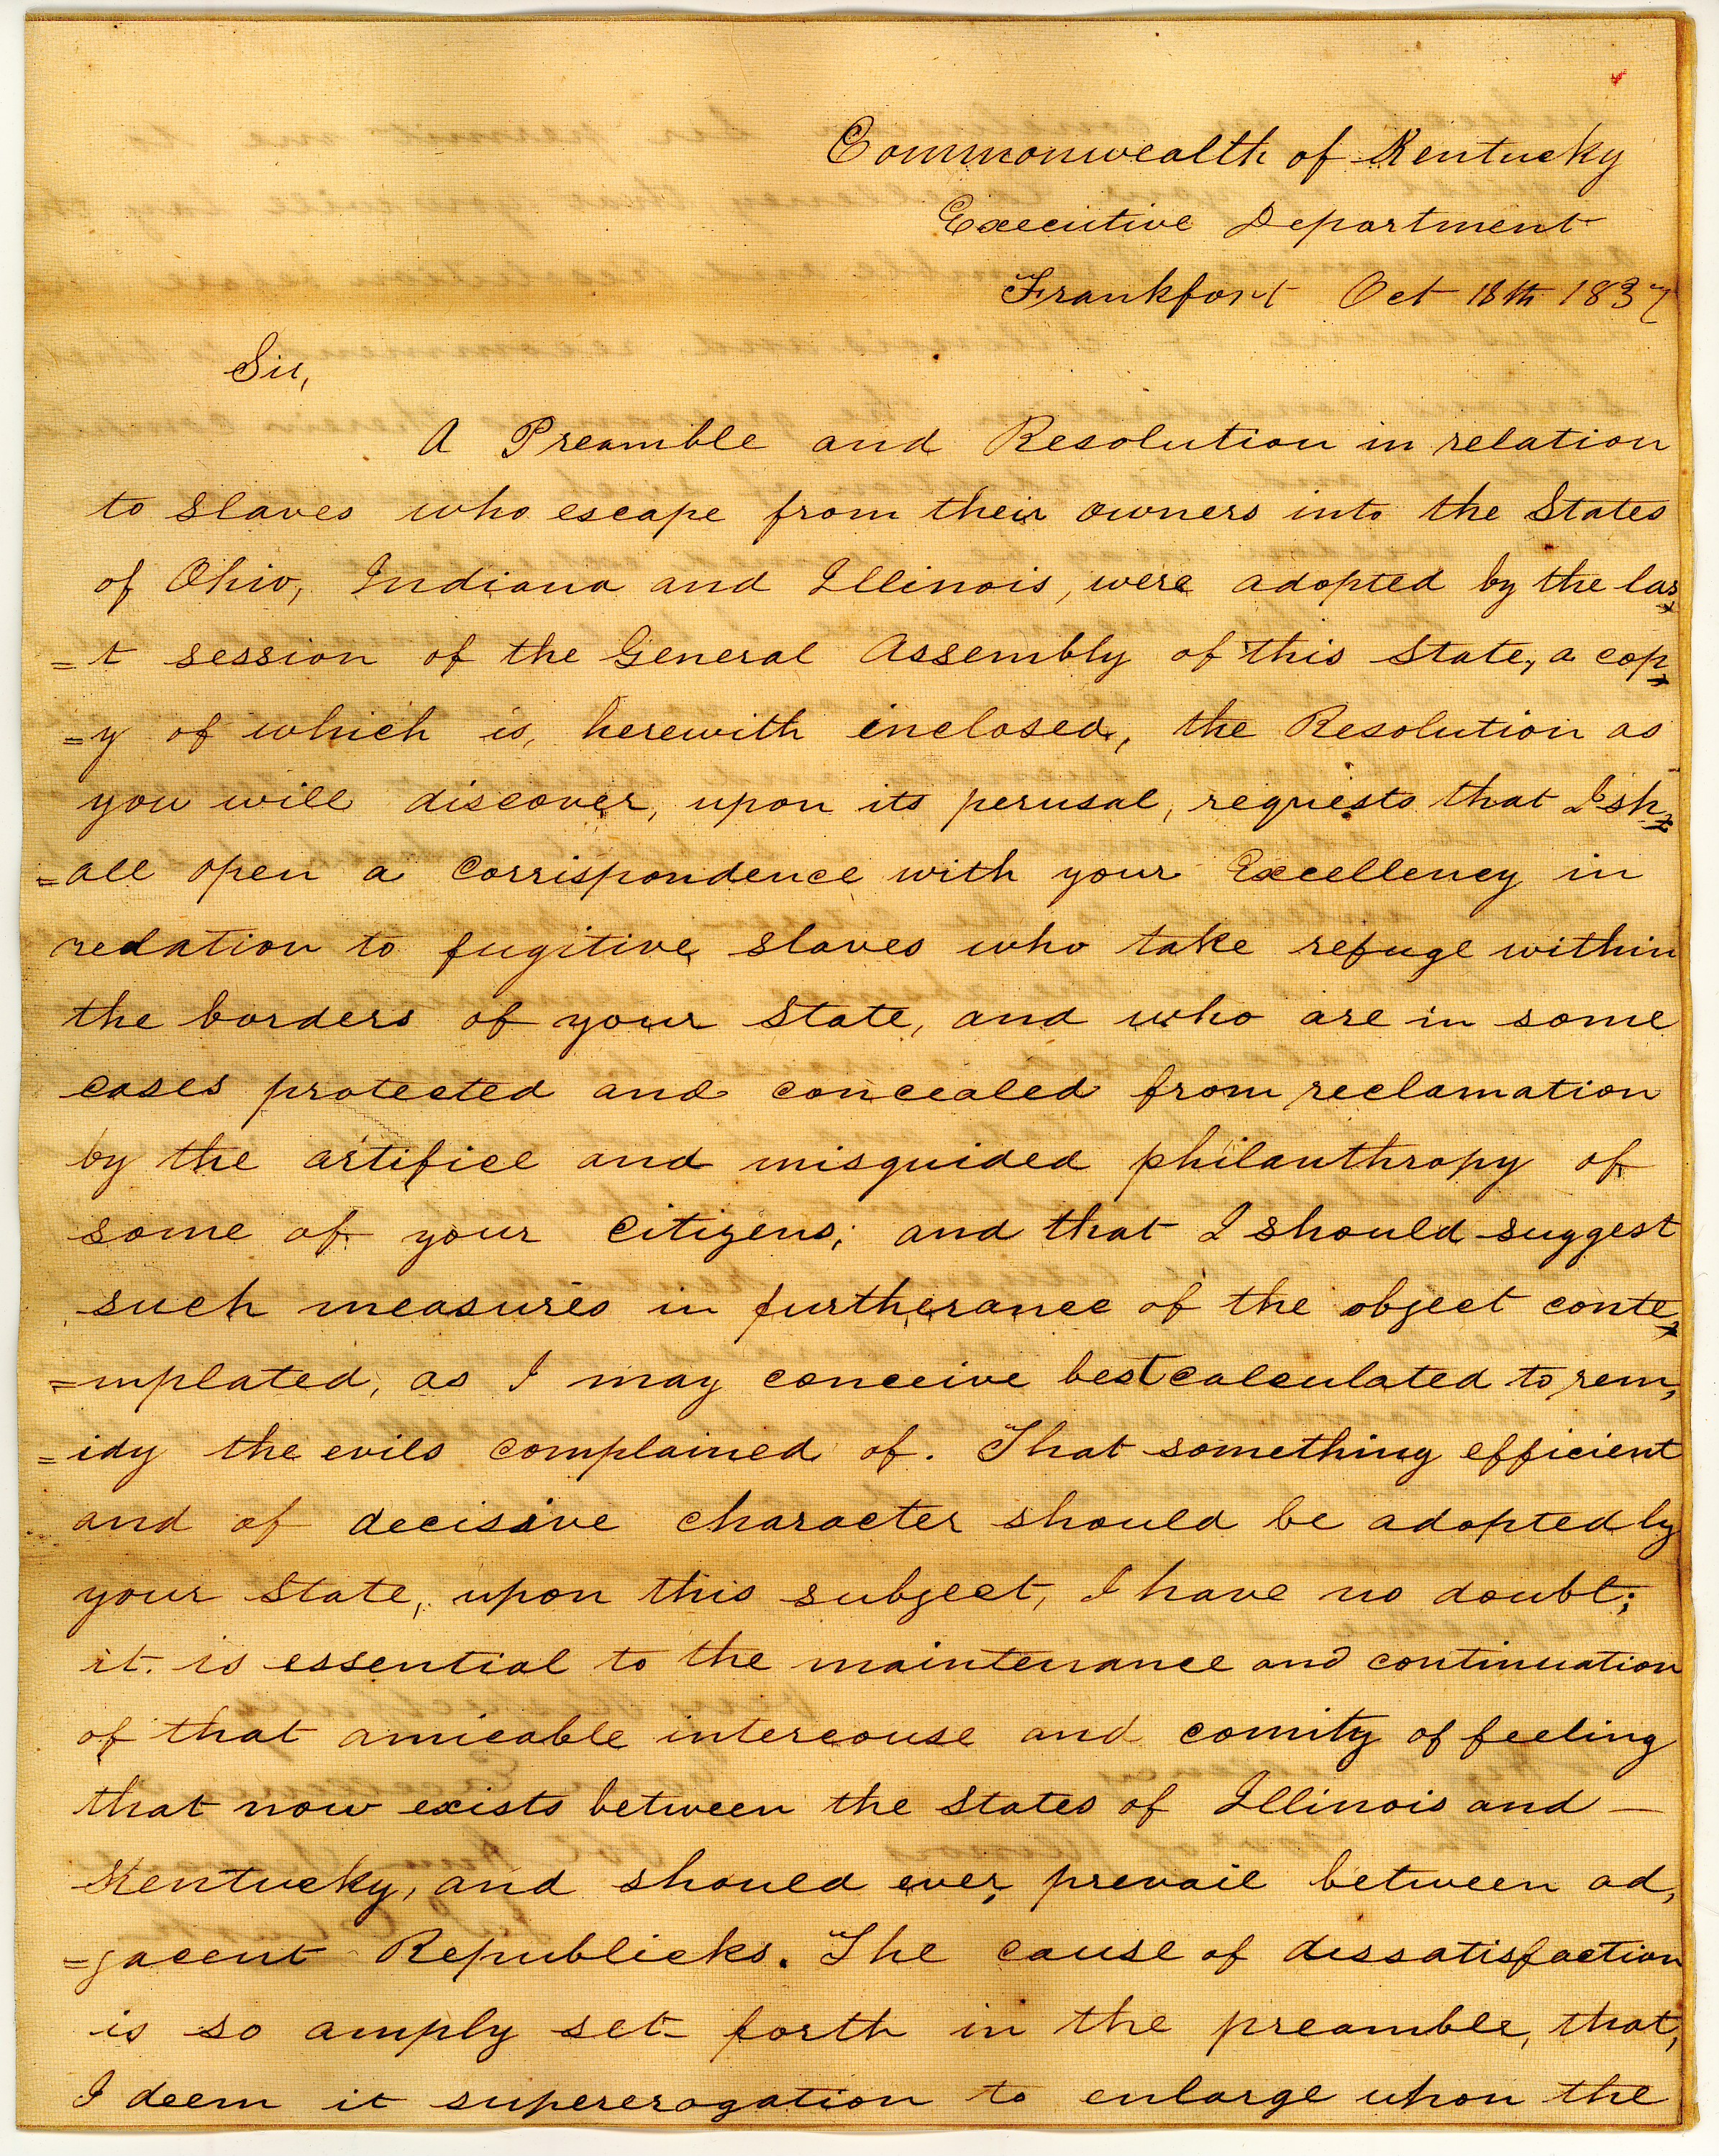 Commonwealth of Kentucky
Executive Department
Frankfort Oct 18th 1837
Sir,
A Preamble and Resolution in relation
to slaves who escape from their owners into the States
of Ohio, Indiana and Illinois, were adopted by the las
=t session of the General Assembly of this State, a cop
=y of which is, herewith inclosed, the Resolution as
you will discover, upon its perusal, requests that I sh
=all open a corrispondence with your Excellency in
redation to fugitive slaves who take refuge within
the borders of your State, and who are in some
cases protected and concealed from reclamation
by the artifice and misguided philanthropy of
some of your citizens; and that I should suggest
such measures in furtherance of the object conte
=mplated, as I may conceive best calculated to rem,
=idy the evils complained of. That something efficient
and of decisive character should be adopted by
your State, upon this subject, I have no doubt;
it is essential to the maintenance and continuation
of that amicable intercouse and comity of feeling
that now exists between the States of Illinois and —
Kentucky, and should ever prevail between ad,
=jacent Republicks. The cause of dissatisfaction
is so amply set forth in the preamble, that,
I deem it supererogation to enlarge upon the